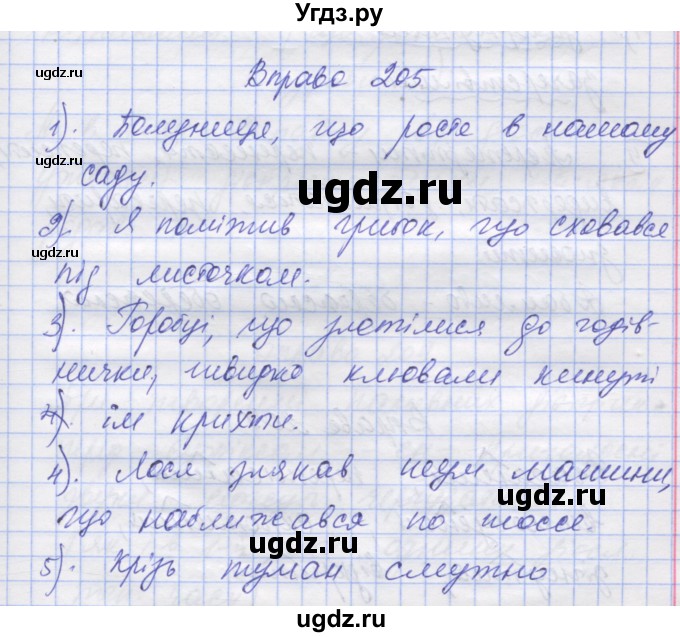 Угдз.ру
Вправа 205
1). Полуниця, що росте в нашому
саду.
2). Я поміжив грибок, що сховався
під листочком.
3). Горобці, що злетілися до годів-
нички, швидко клювали кинуті
їм крихти.
4). Лося злякав шум машини,
що наближався по шоссе.
5). Крізь туман смутно
ugdz.ru
ugdz.ru
ugdz.ru
ugdz.ru
ugdz.ru
ugdz.ru
ugdz.ru
ugdz.ru
ugdz.ru
ugdz.ru